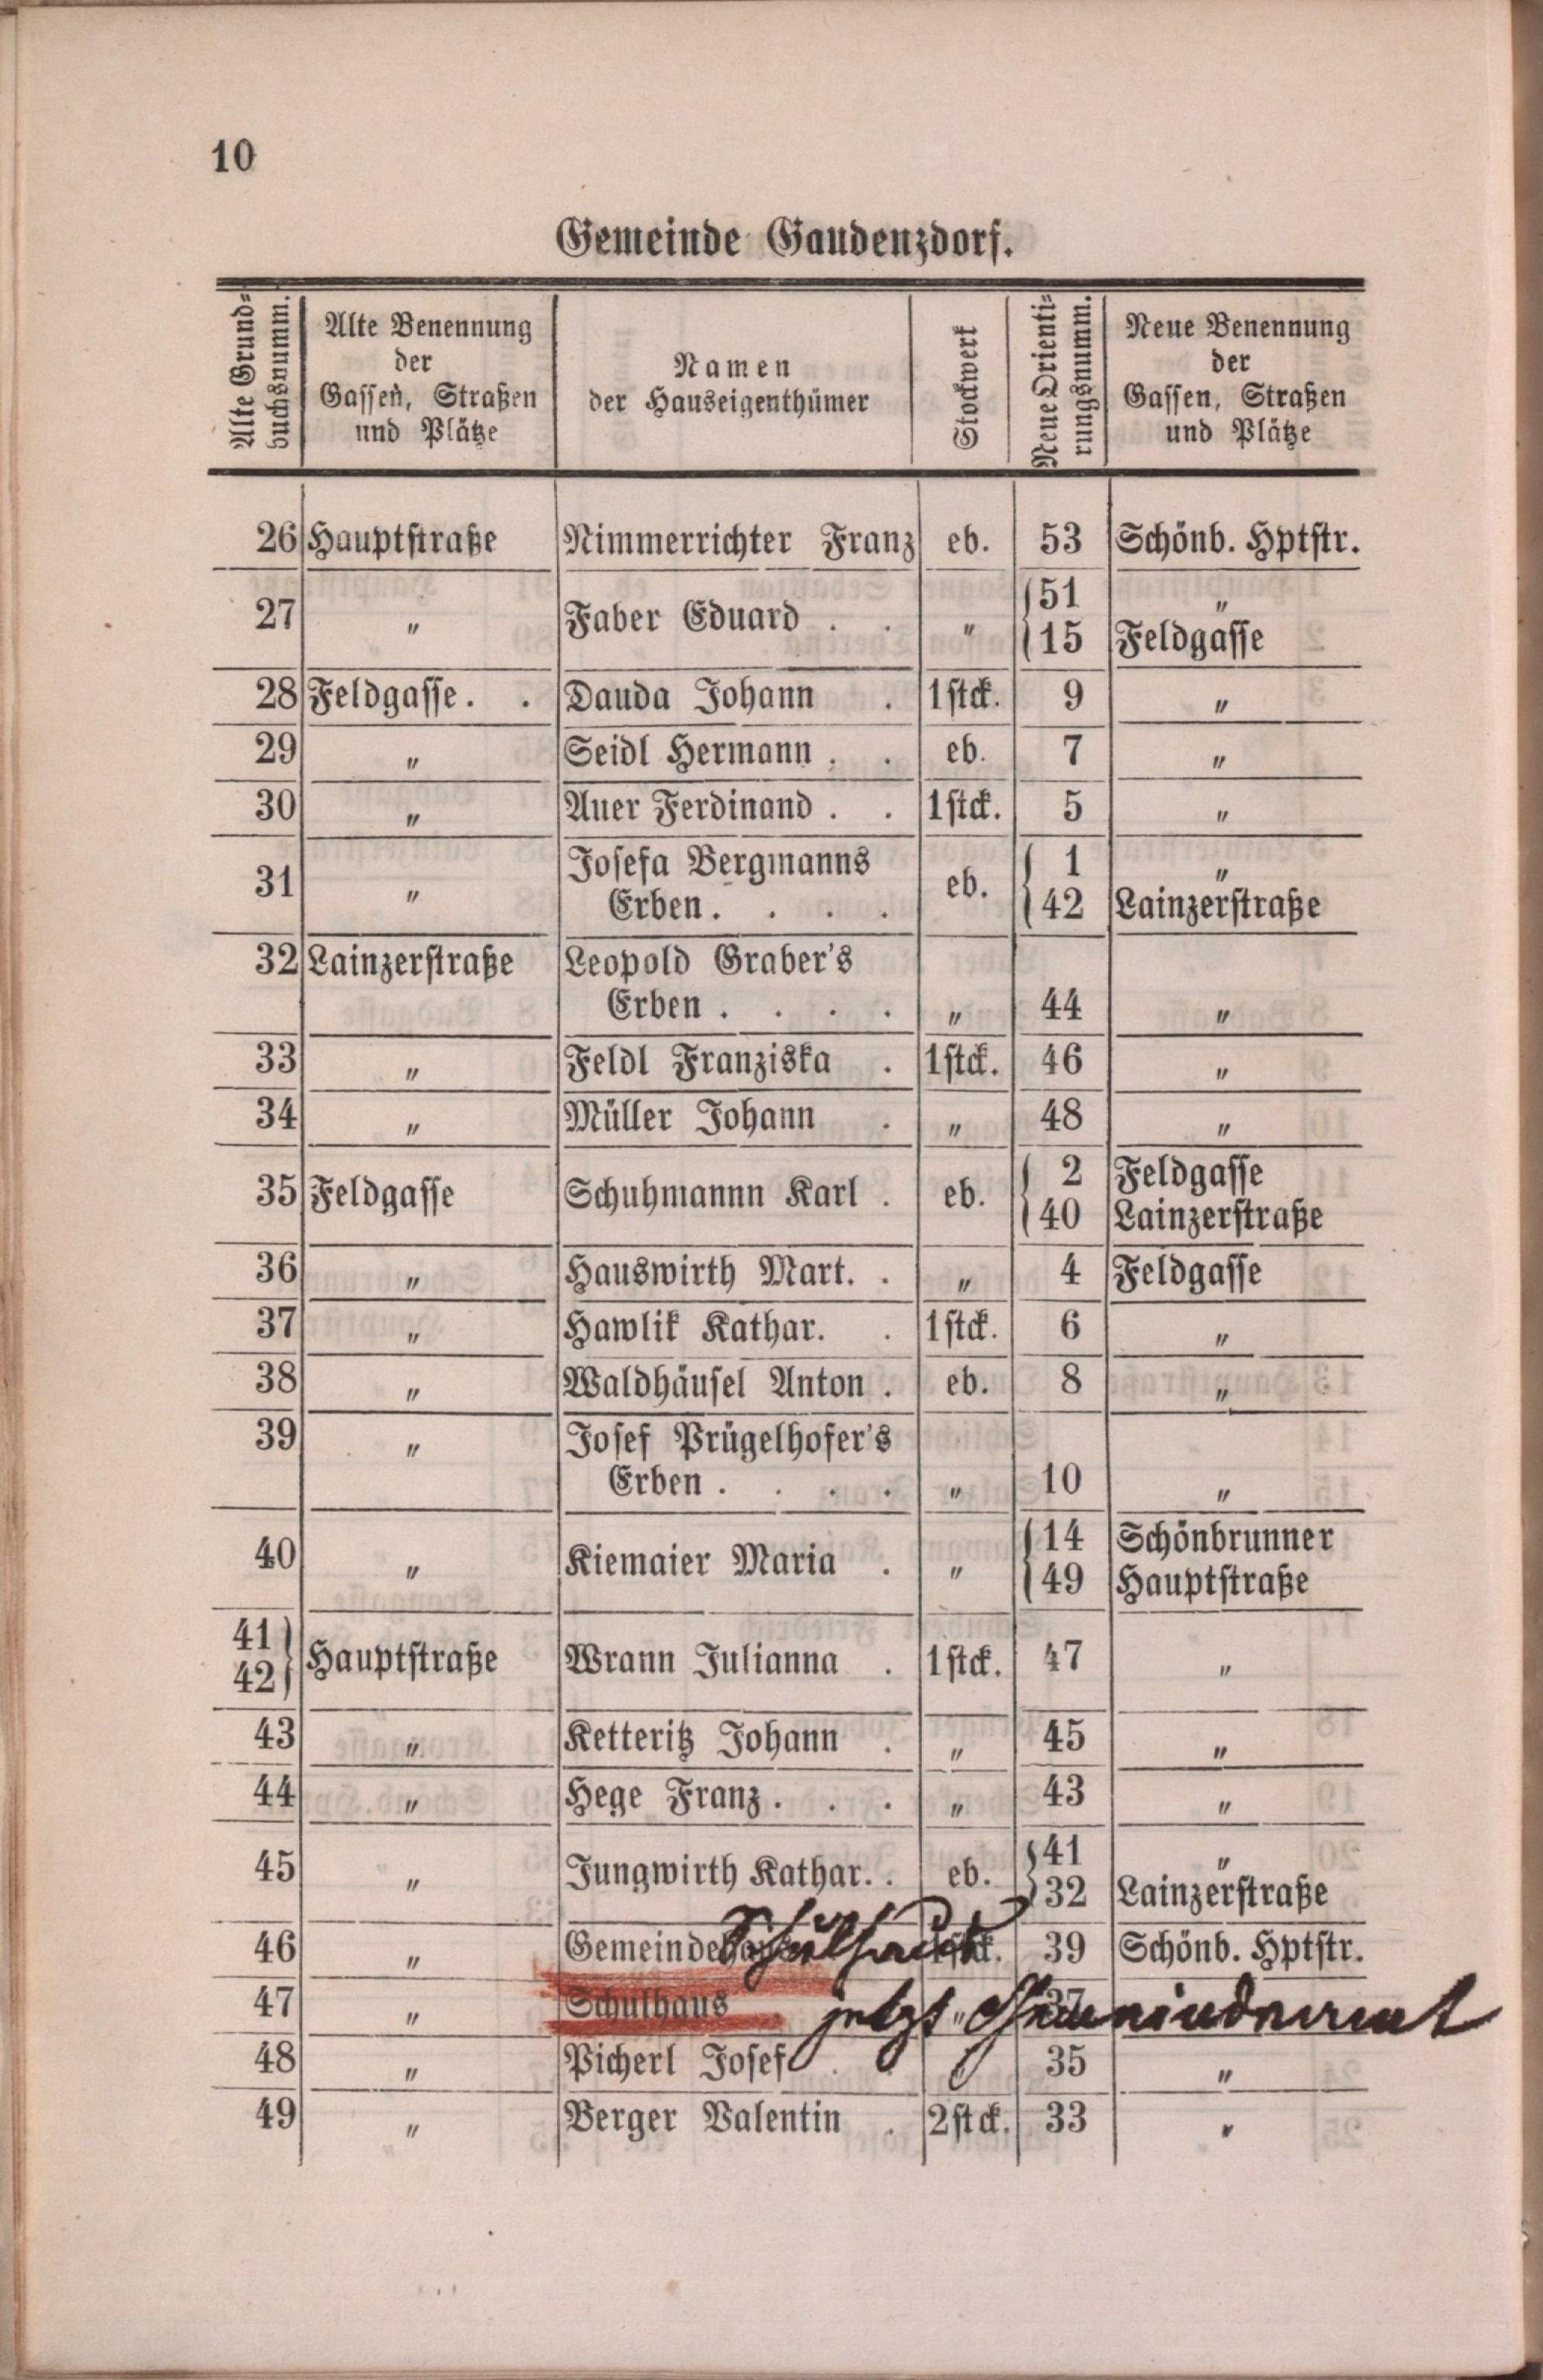 10
Gemeinde Gaudenzdorf.
Alte Grund-
buchsnumm.
Alte Benennung
der
Gassen, Straßen
und Plätze
Namen
der Hauseigenthümer
Stockwerk
Neue Orienti-
rungsnumm.
Neue Benennung
der
Gassen, Straßen
und Plätze
26 Hauptstraße Nimmerrichter Franz eb. 53 Schönb. Hptstr.
27 " Faber Eduard . . " { 51 "
{ 15 Feldgasse
28 Feldgasse . . Dauda Johann . 1stck. 9 "
29 " Seidl Hermann . . eb. 7 "
30 " Auer Ferdinand . . 1stck. 5 "
31 " Josefa Bergmanns eb. { 1 "
Erben . . . . { 42 Lainzerstraße
32 Lainzerstraße Leopold Graber's
Erben . . . . " 44 "
33 " Feldl Franziska . 1stck. 46 "
34 " Müller Johann . " 48 "
35 Feldgasse Schuhmannn Karl . eb. { 2 Feldgasse
{ 40 Lainzerstraße
36 " Hauswirth Mart. . " 4 Feldgasse
37 " Hawlik Kathar. . 1stck. 6 "
38 " Waldhäusel Anton . eb. 8 "
39 " Josef Prügelhofer's
Erben . . . . " 10 "
40 " Kiemaier Maria . " { 14 Schönbrunner
{ 49 Hauptstraße
41 }
42 } Hauptstraße Wrann Julianna . 1stck. 47 "
43 " Ketteritz Johann . " 45 "
44 " Hege Franz . . . " 43 "
45 " Jungwirth Kathar. . eb. { 41 "
{ 32 Lainzerstraße
Schulhaus
46 " Gemeindehaus 1stck. 39 Schönb. Hptstr.
47 " Schulhaus . " 37
jetzt Gemeindeamt
48 " Picherl Josef . . 35 "
49 " Berger Valentin . 2stck. 33 "